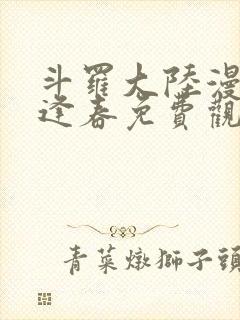 斗羅大陸漫
逢春免費觀
青菜燉獅子頭